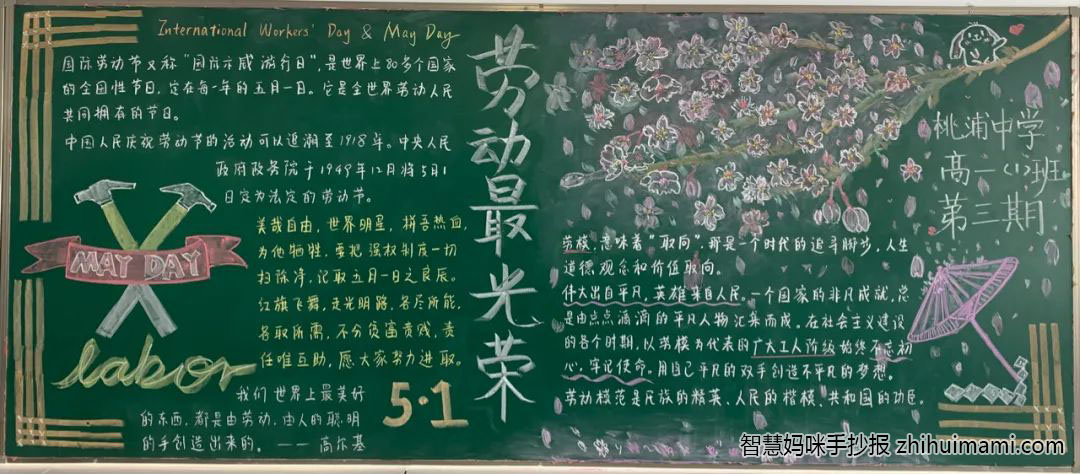 International Workers' Day & May Day
国际劳动节又称"国际示威游行日",是世界上80多个国家
的全国性节日,定在每一年的五月一日。它是全世界劳动人民
共同拥有的节日。
中国人民庆祝劳动节的活动可以追溯至1918年。中央人民
政府政务院于1949年12月将5月1
日定为法定的劳动节。
美哉自由,世界明星,拼吾热血,
为他牺牲,要把强权制度一切
扫除净,记取五月一日之良辰。
红旗飞舞,走光明路,各尽所能,
各取所需,不分贫富贵贱,责
任唯互助,愿大家努力进取。
MAY DAY
labor
我们世界上最美好
的东西,都是由劳动、由人的聪明
的手创造出来的。——高尔基
5·1
劳动最光荣
桃浦中学
高一(1)班
第三期
劳模,意味着"取向",那是一个时代的追寻脚步,人生
道德观念和价值取向。
伟大出自平凡,英雄来自人民。一个国家的非凡成就,总
是由点点滴滴的平凡人物汇集而成。在社会主义建设
的各个时期,以劳模为代表的广大工人阶级始终不忘初
心、牢记使命。用自己平凡的双手创造不平凡的梦想。
劳动模范是民族的精英、人民的楷模、共和国的功臣。
智慧妈咪手抄报 zhihuimami.com